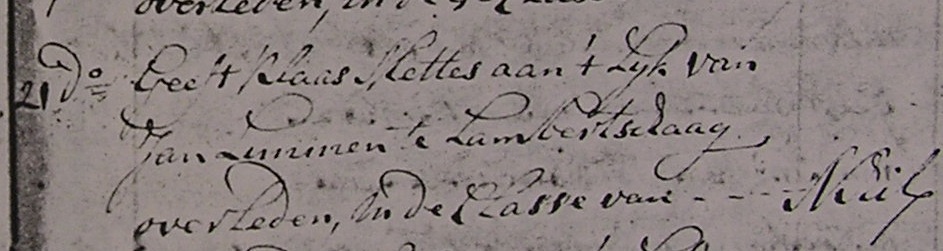 overleden, in de Classe
21 do Geeft Klaas Slettes aan 't Lijk van
Jan Limmen te Lambertschaag
overleden, In de Classe van - - -